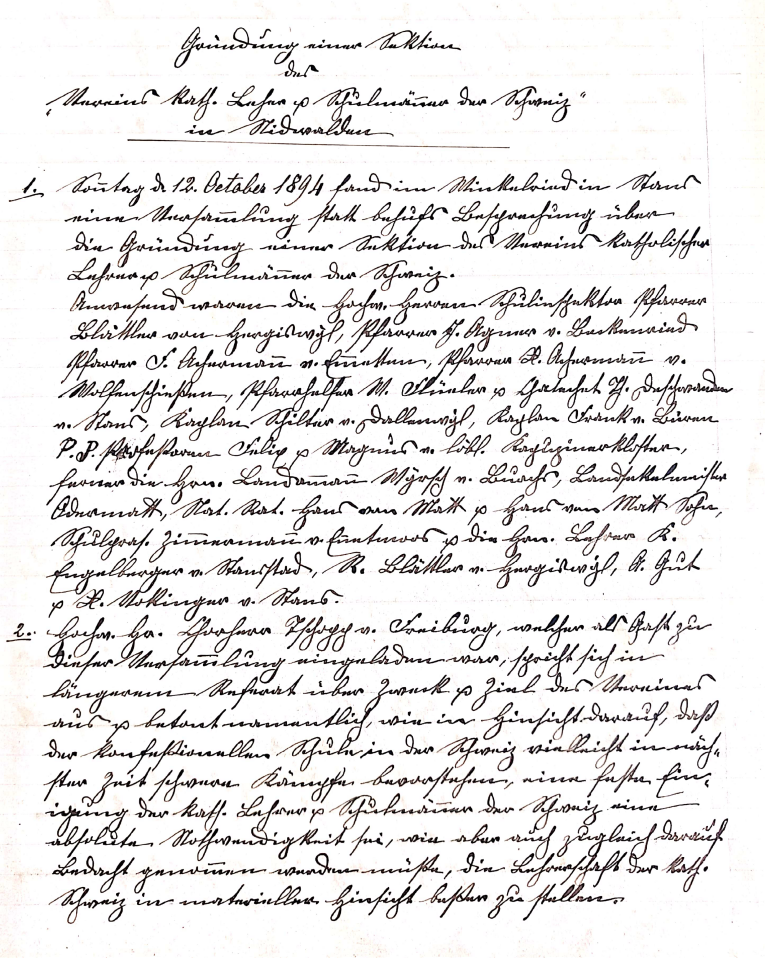 Gründung einer Sektion
des
„Vereins kath. Leher u Schulmänner der Schweiz"
in Nidwalden
1. Sonntag d. 12. October 1894 fand im Winkelried in Stans
eine Versammlung statt behufs Besprechung über
die Gründung einer Sektion des Vereins katholischer
Lehrer u Schulmänner der Schweiz.
Anwesend waren die Hochw. Herren Schulinspektor Pfarrer
Blättler von Hergiswyl, Pfarrer J. Agner v. Beckenried
Pfarrer F. Achermann v. Emmetten, Pfarrer A. Achermann v.
Wolfenschießen, Pfarrhelfer W. Flüeler u Chatechet Th. Deschwanden
v. Stans, Kaplan Schilter v. Dallenwyl, Kaplan Frank v. Büren
P. P. Professoren Felix u Magnus v. löbl. Kapuzinerkloster,
ferner die Hrn. Landammann Wyrsch v. Buochs, Landsekelmeister
Odermatt, Nat. Rat. Hans von Matt u Hans von Matt Sohn,
Schulpräs. Zimmermann v. Ennetmoos u die Hrn. Lehrer K.
Engelberger v. Stansstad, R. Blättler v. Hergiswyl, A. Gut
u X. Nokinger v. Stans.
2. Hochw. Hr. Chorherr Tschopp v. Freiburg, welcher als Gast zu
dieser Versammlung eingeladen war, spricht sich in
längerem Referat über Zweck u Ziel des Vereines
aus u betont namentlich, wie in Hinsicht darauf, daß
der konfeßionellen Schule in der Schweiz vielleicht in näch-
ster Zeit schwere Kämpfe bevorstehen, eine feste Ein-
igung der kath. Lehrer u Schulmänner der Schweiz eine
absolute Nothwendigkeit sei, wie aber auch zugleich darauf
Bedacht genommen werden müße, die Lehrerschaft der kath.
Schweiz in materieller Hinsicht beßer zu stellen.